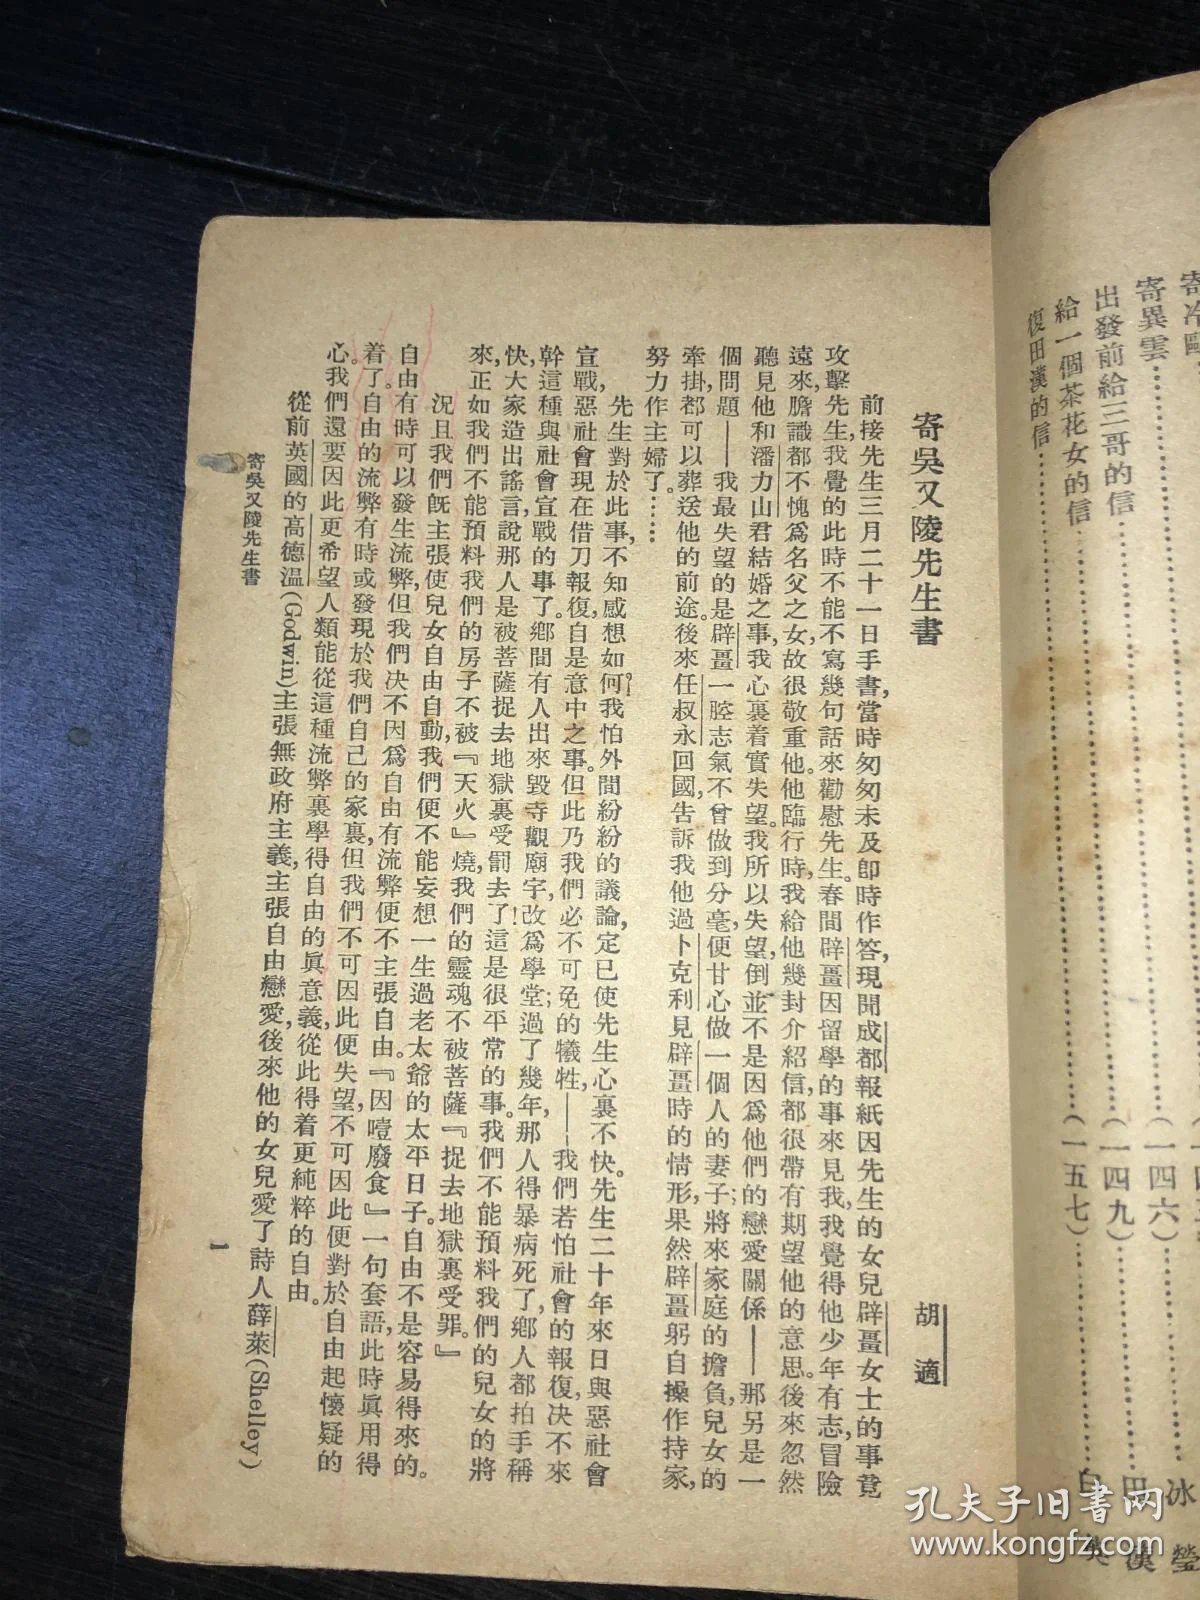 寄冷
寄異雲……………(一四六)……冰瑩
出發前給三哥的信……………(一四九)……
給一個茶花女的信……………(一五七)……白
復田漢的信……………
寄吳又陵先生書
胡適
前接先生三月二十一日手書,當時匆匆未及卽時作答,現聞成都報紙因先生的女兒辟畺女士的事竟
攻擊先生,我覺的此時不能不寫幾句話來勸慰先生。春間辟畺因留學的事來見我,我覺得他少年有志,冒險
遠來,膽識都不愧爲名父之女,故很敬重他。他臨行時,我給他幾封介紹信,都很帶有期望他的意思。後來忽然
聽見他和潘力山君結婚之事,我心裏着實失望。我所以失望,倒並不是因爲他們的戀愛關係——那另是一
個問題——我最失望的是辟畺一腔志氣不曾做到分毫,便甘心做一個人的妻子;將來家庭的擔負,兒女的
牽掛,都可以葬送他的前途。後來任叔永回國,告訴我他過卜克利見辟畺時的情形,果然辟畺躬自操作持家,
努力作主婦了。……
先生對於此事,不知感想如何?我怕外間紛紛的議論,定已使先生心裏不快。先生二十年來日與惡社會
宣戰,惡社會現在借刀報復,自是意中之事。但此乃我們必不可免的犧牲——我們若怕社會的報復,决不來
幹這種與社會宣戰的事了。鄉間有人出來毀寺觀廟宇,改爲學堂;過了幾年,那人得暴病死了,鄉人都拍手稱
快,大家造出謠言,說那人是被菩薩捉去地獄裏受罰去了!這是很平常的事。我們不能預料我們的兒女的將
來,正如我們不能預料我們的房子不被『天火』燒,我們的靈魂不被菩薩『捉去地獄裏受罪。』
況且我們旣主張使兒女自由自動,我們便不能妄想一生過老太爺的太平日子。自由不是容易得來的。
自由有時可以發生流弊,但我們决不因爲自由有流弊便不主張自由。『因噎廢食』一句套語,此時眞用得
着了。自由的流弊有時或發現於我們自己的家裏,但我們不可因此便失望,不可因此便對於自由起懷疑的
心。我們還要因此更希望人類能從這種流弊裏學得自由的眞意義,從此得着更純粹的自由。
從前英國的高德溫(Godwin)主張無政府主義,主張自由戀愛,後來他的女兒愛了詩人薛萊(Shelley)
寄吳又陵先生書
1
孔夫子旧书网
www.kongfz.com